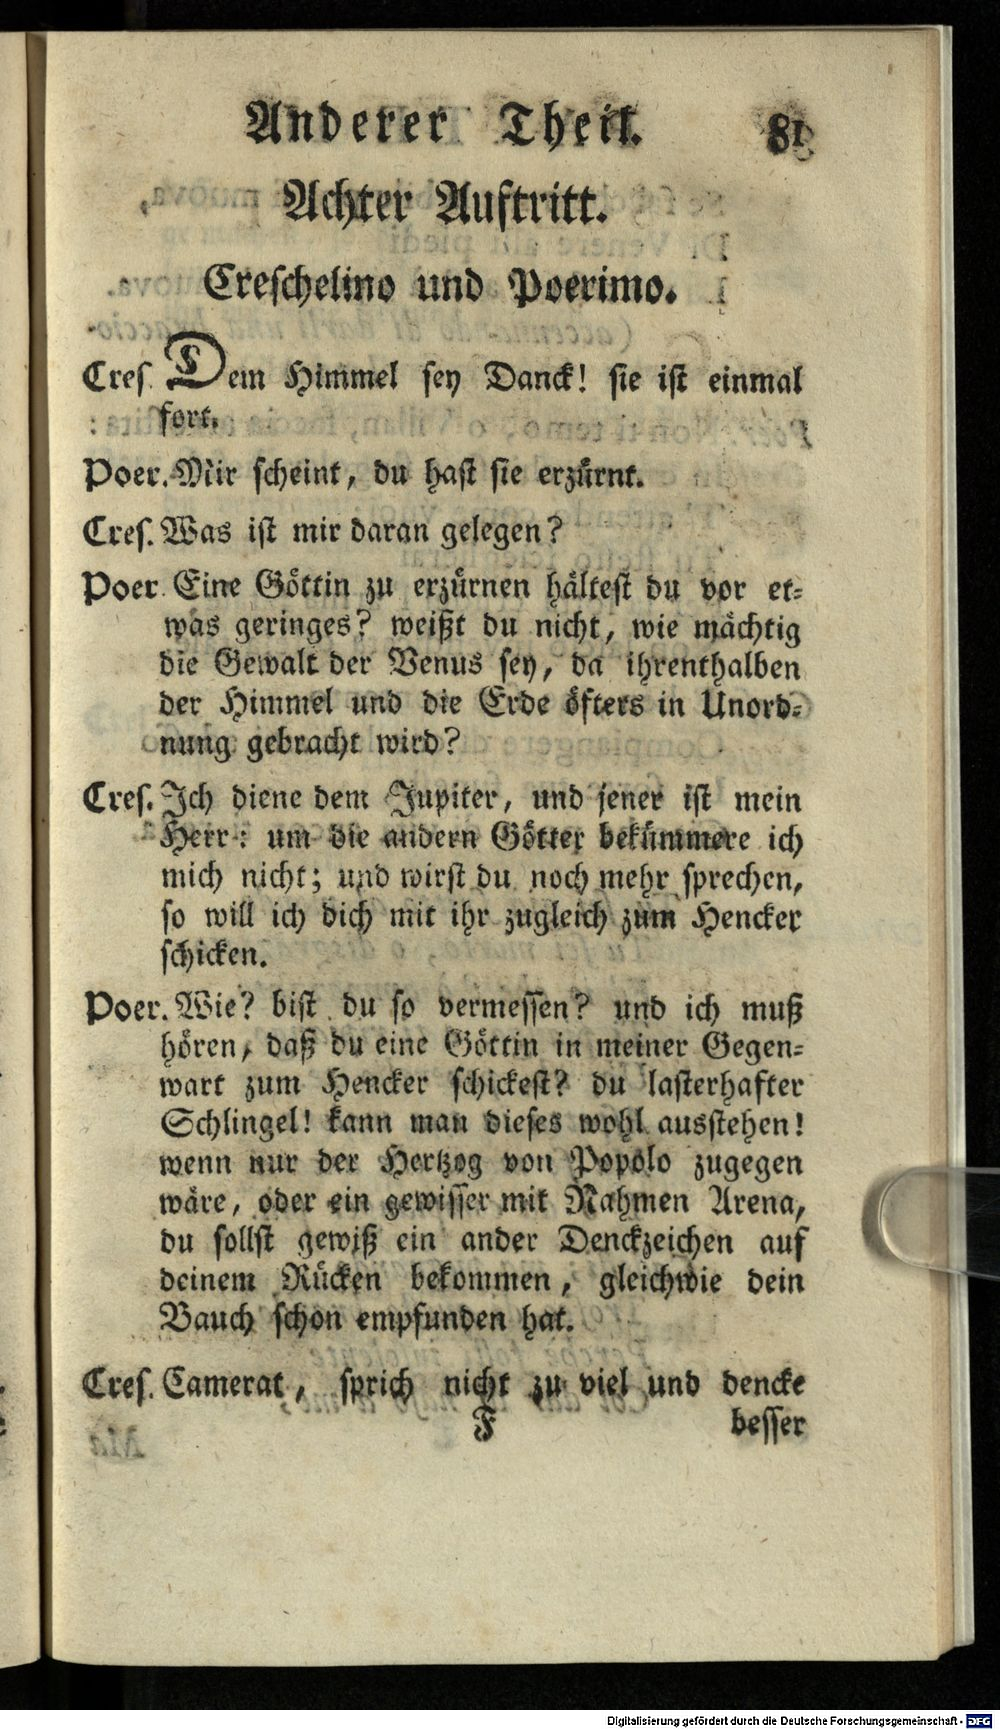 Anderer Theil. 81
Achter Auftritt.
Creschelino und Poerimo.
Cres. Dem Himmel sey Danck! sie ist einmal
fort.
Poer. Mir scheint, du hast sie erzürnt.
Cres. Was ist mir daran gelegen?
Poer. Eine Göttin zu erzürnen hältest du vor et-
was geringes? weißt du nicht, wie mächtig
die Gewalt der Venus sey, da ihrenthalben
der Himmel und die Erde öfters in Unord-
nung gebracht wird?
Cres. Ich diene dem Jupiter, und jener ist mein
Herr: um die andern Götter bekümmere ich
mich nicht; und wirst du noch mehr sprechen,
so will ich dich mit ihr zugleich zum Hencker
schicken.
Poer. Wie? bist du so vermessen? und ich muß
hören, daß du eine Göttin in meiner Gegen-
wart zum Hencker schickest? du lasterhafter
Schlingel! kann man dieses wohl ausstehen!
wenn nur der Hertzog von Popolo zugegen
wäre, oder ein gewisser mit Nahmen Arena,
du sollst gewiß ein ander Denckzeichen auf
deinem Rücken bekommen, gleichwie dein
Bauch schon empfunden hat.
Cres. Camerat, sprich nicht zu viel und dencke
F besser
Digitalisierung gefördert durch die Deutsche Forschungsgemeinschaft - DFG